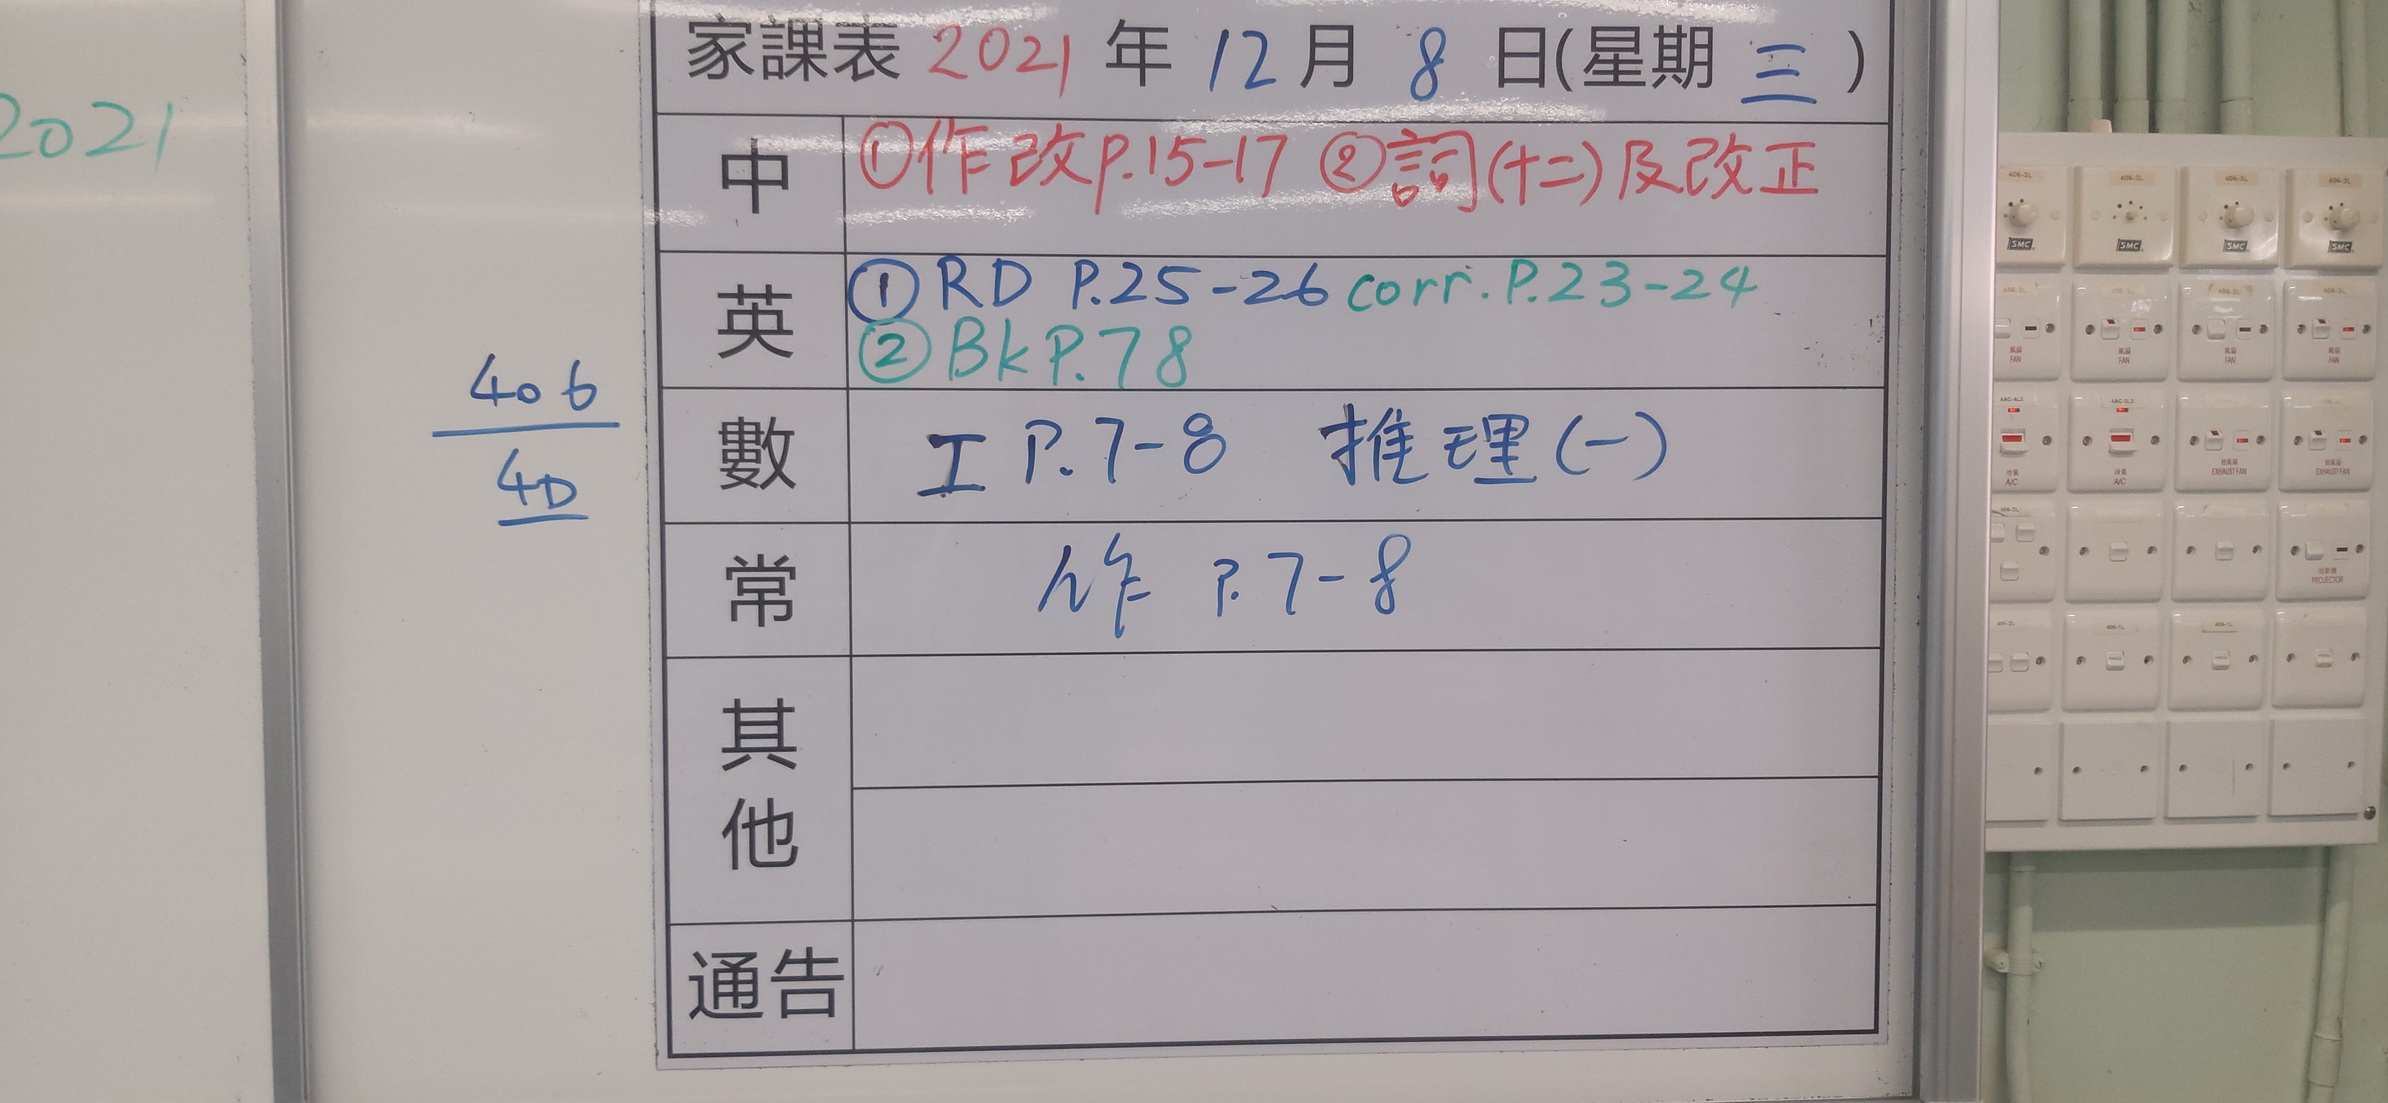 2021
406
4D
家課表 2021 年 12 月 8 日(星期 三 )
中 ①作改P.15-17 ②詞(十二)及改正
英 ① RD P.25-26 corr. P.23-24
② Bk P.78
數 工 P.7-8 推理(一)
常 作 P.7-8
其他
通告
406-3L 406-3L 406-3L
SMC SMC SMC SMC
風扇 風扇 風扇 風扇
FAN FAN FAN FAN
冷氣 冷氣 抽氣扇 抽氣扇
A/C A/C EXHAUST FAN EXHAUST FAN
投影機
PROJECTOR